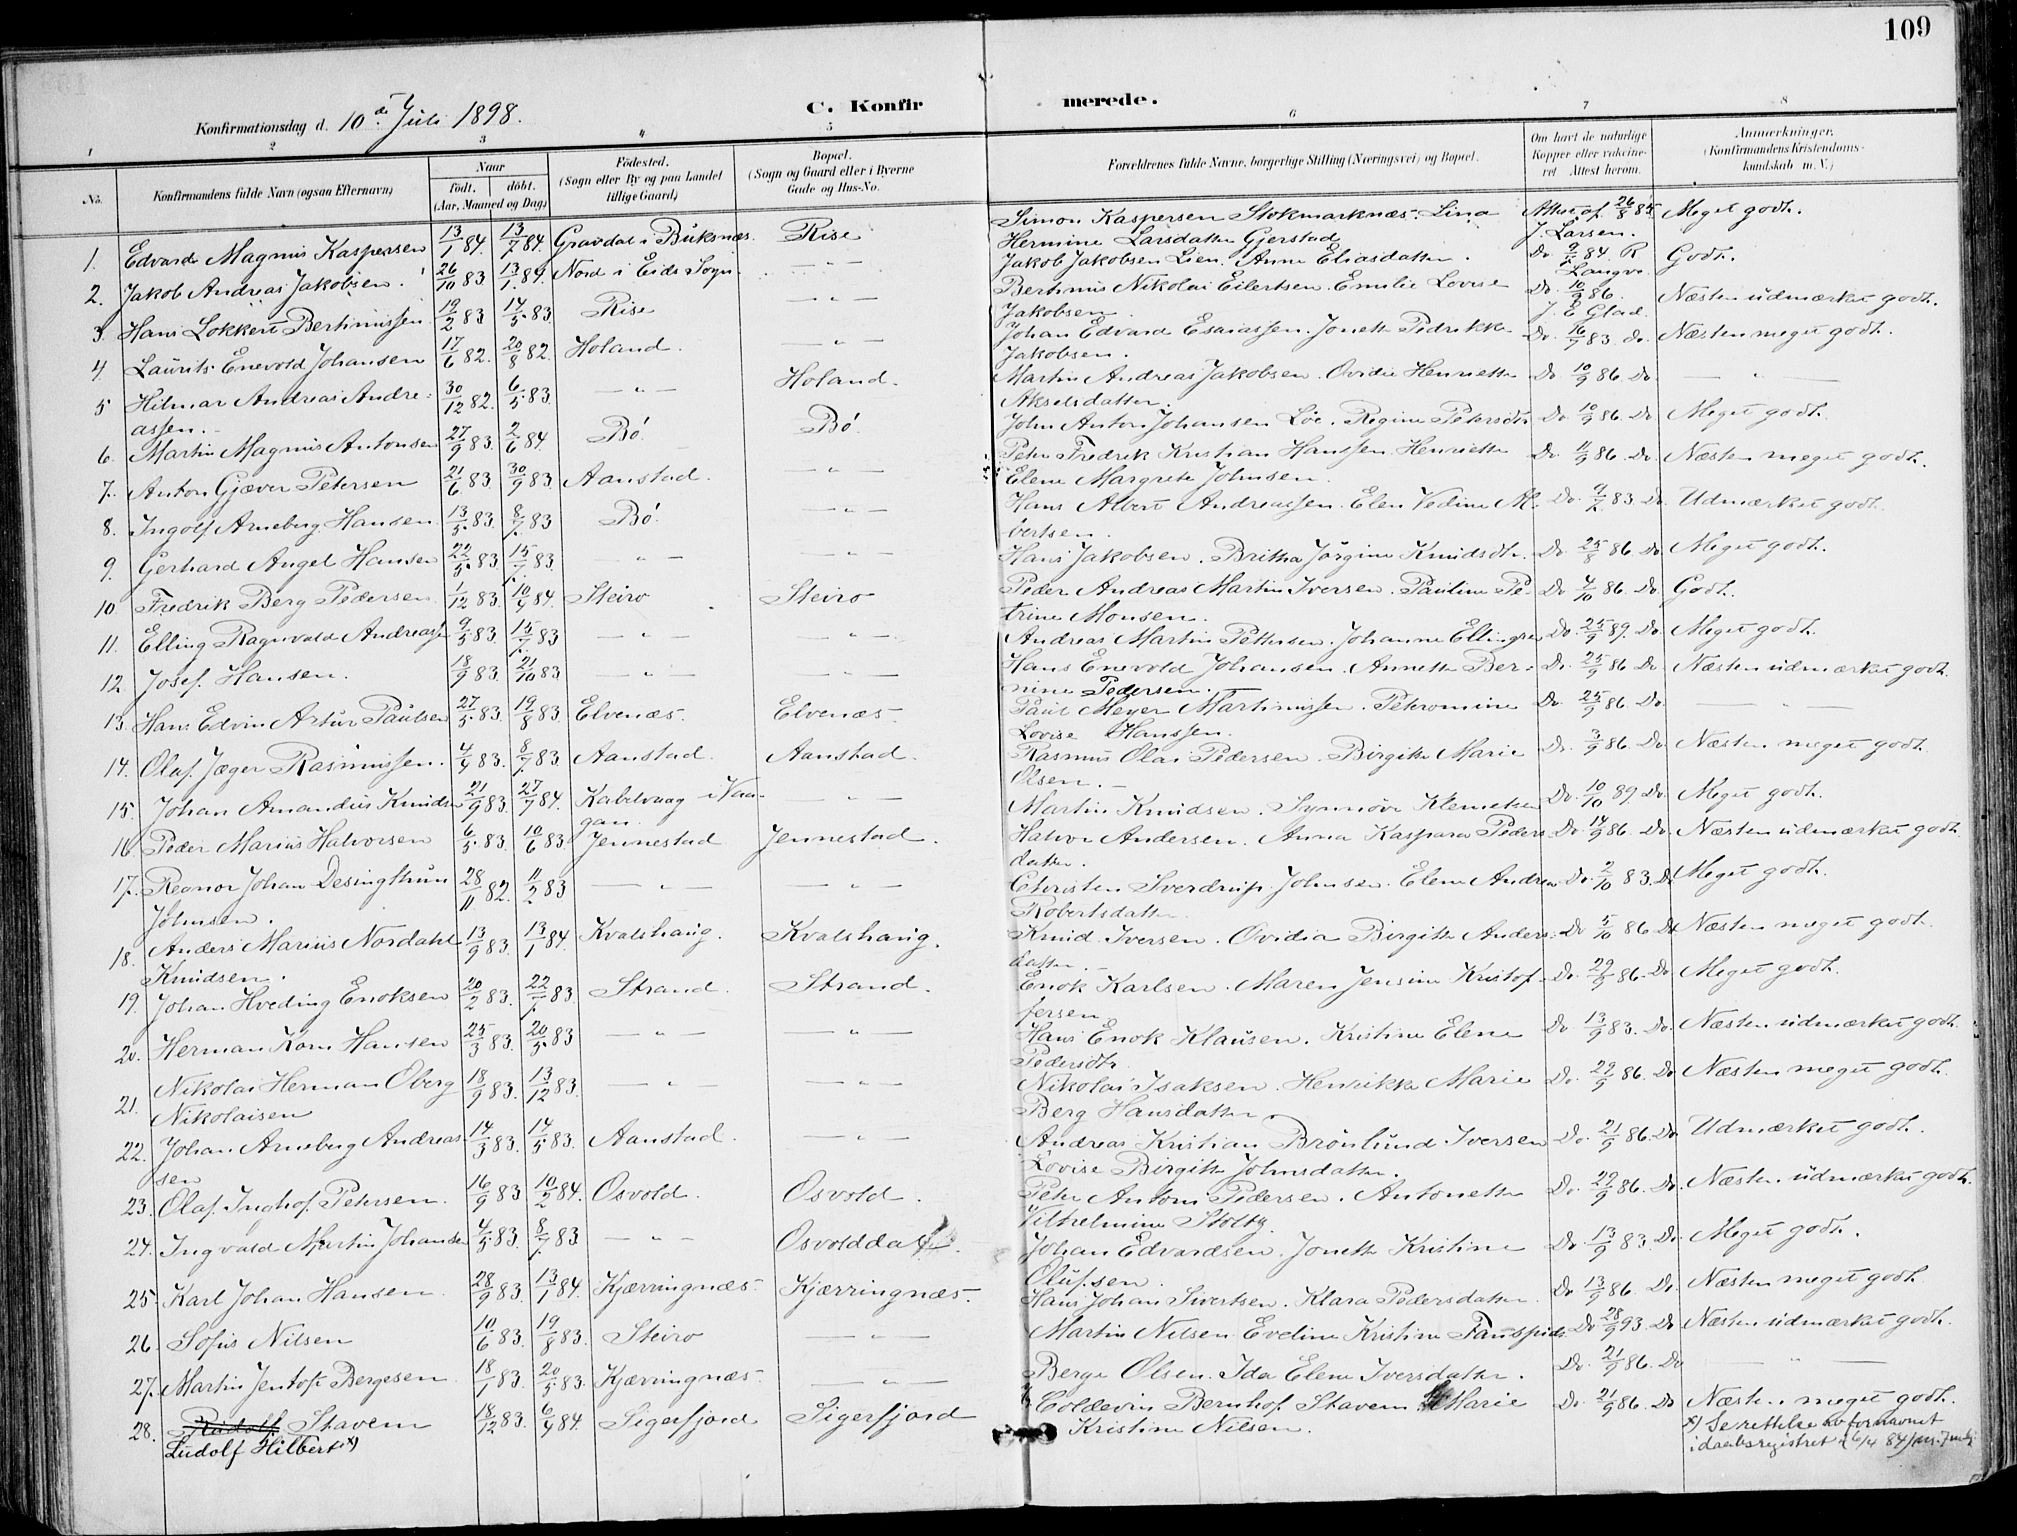 109
C. Konfirmerede.
Konfirmationsdag d. 10de Juli 1898.
1 2 3 4 5 6 7 8
No. Konfirmandens fulde Navn (ogsaa Efternavn) Naar født. døbt. (Aar, Maaned og Dag) Fødested. (Sogn eller By og paa Landet tillige Gaard) Bopæl. (Sogn og Gaard eller i Byerne Gade og Hus-No. Forældrenes fulde Navne, borgerlige Stilling (Næringsvei) og Bopæl. Om havt de naturlige Kopper eller vaccineret Attest herom. Anmærkninger. (Konfirmandens Kristendomskundskab m. V.)
1. Edvard Magnus Kaspersen 13/1 84. 13/7 84. Gravdal i Buksnæs. Rise Simon Kaspersen Stokmarknæs. Lina Attest af 26/8 85 Meget godt.
Hermine Larsdatter Gjerstad J. Larsen.
2. Jakob Andreas Jakobsen 26/10 83 13/1 84. Nord i Eids Sogn — " — Jakob Jakobsen Lien. Anne Eliasdatter. Do 84 R Godt.
3. Hans Lokkert Bertinussen 19/2 83 14/5 83 Rise — " — Bertinus Nikolai Eilertsen. Emilie Lovise Do 10/9 86. Næsten udmærket godt.
Jakobsen. J. E. Glad.
4. Laurits Enevold Johansen 17/6 82. 20/8 82. Holand. — " — Johan Edvard Esaiassen. Jonette Pedrikke Do 16/9 83. do. Næsten meget godt.
Jakobsen.
5 Hilmar Andreas Andreassen. 30/12 82. 6/5 83. — " — Holand. Martin Andreas Jakobsen. Ovidie Henriette Do 10/9 86. Do. — " —
Akselsdatter.
6. Martin Magnus Antonsen 27/9 83. 2/6 84. Bø Bø John Anton Johansen Løe. Regine Petersdtr Do 10/9 86. Do Meget godt.
7. Anton Gjæver Petersen 21/6 83. 30/9 83. Aanstad. — " — Peter Fredrik Kristian Hanssen. Henriette Do 11/9 86. Do. Næsten meget godt.
Elene Margrete Johnsen.
8. Ingolf Arneberg Hansen 13/5 83. 8/7 83 Bø. — " — Hans Albert Andreassen. Elen Vedine Al- Do. 83. Do Udmærket godt.
bertsen.
9. Gerhard Angel Hansen 22/5 83. 15/7 83. — " — — " — Hans Jakobsen. Britha Jørgine Knudsdtr. Do. 25/8 86. Do Meget godt.
10 Fredrik Berg Pedersen 1/12 83. 10/9 84. Steiro Steiro Peder Andreas Martin Iversen. Pauline Pe- Do 4/10 86. Do Godt.
trine Monsen.
11. Elling Ragnvald Andreassen 9/5 83. 15/7 83 — " — — " — Andreas Martin Pettersen. Johanne Ellingsen Do. 25/9 89. Do. Meget godt.
12. Josef Hansen. 18/9 83. 21/10 83 — " — — " — Hans Enevold Johansen. Annette Ber- Do. 25/9 86 Do Næsten udmærket godt.
nine Pedersen.
13. Hans Edvin Artur Paulsen 27/5 83. 19/8 83. Elvenæs. Elvenæs. Paul Meyer Martinussen. Petromine Do 25/9 86. Do — " —
Lovise Hanssen.
14. Olaf Jæger Rasmussen. 4/9 83. 8/7 83. Aanstad. Aanstad. Rasmus Olai Pedersen. Birgitte Marie Do. 3/9 86. Do Næsten meget godt.
Olsen.
15. Johan Amandus Knudsen 21/9 83. 27/7 84. Kabelvaag i Vaagan. — " — Martin Knudsen. Synnøve Klemetsen Do. 10/10 89 Do. Meget godt.
16 Peder Marius Halvorsen 6/5 83. 10/6 83. Jennestad Jennestad. Halvor Andersen. Anna Kaspara Peders- Do. 14/9 86. Do. Næsten udmærket godt.
datter.
17. Reonor Johan Desingthun Johnsen. 28/11 82. 11/2 83 — " — — " — Christen Sverdrup Johnsen. Elene Andrea Do. 2/10 83. Do Meget godt.
Robertsdatter.
18. Anders Marius Nordahl Knudsen. 13/9 83. 13/1 84. Kvalshaug. Kvalshaug. Knud Iversen. Ovidia Birgitte Anders- Do 5/10 86 Do Næsten meget godt.
datter.
19. Johan Hveding Enoksen 20/2 83. 22/7 83. Strand. Strand. Enok Karlsen. Maren Jensine Kristof- Do. 29/9 86. Do Meget godt.
fersen
20. Herman Korn Hansen 25/3 83. 20/5 83 — " — — " — Hans Enok Klausen. Kristine Elene Do 13/9 83. Do. Næsten udmærket godt.
Pedersdtr.
21. Nikolai Herman Oberg Nikolaisen 18/9 83. 13/12 83. — " — — " — Nikolai Isaksen. Henrikke Marie Do. 29/9 86. Do Næsten meget godt.
Berg Hansdatter.
22. Johan Arneberg Andreassen 14/3 83. 14/5 83. Aanstad. — " — Andreas Kristian Brønlund Iversen Do. 21/9 86. Do Udmærket godt.
Lovise Birgitte Johnsdatter.
23. Olaf Inghof Petersen. 16/9 83. 10/2 84. Osvold. Osvold. Peter Antoni Pedersen. Antonette Do. 29/9 86. Do. Næsten udmærket godt.
Vilhelmine Stoltz.
24. Ingvald Martin Johansen 4/5 83. 8/7 83 — " — Osvolddal. Johan Edvardsen. Jonette Kristine Do. 13/9 83. Do. Meget godt.
Olufsen.
25. Karl Johan Hansen 28/9 83. 13/1 84. Kjærringnæs. Kjærringnæs. Hans Johan Sivertsen. Klara Pedersdatter. Do 13/9 86. Do. Næsten meget godt.
26. Sofus Nilsen 10/6 83. 19/8 83. Steiro — " — Martin Nilsen. Eveline Kristine Do 28/9 93. Do Næsten udmærket godt.
27. Martin Jentoft Bergesen 18/1 83. 20/5 83. Kjærringnæs. — " — Berge Olsen. Ida Elene Iversdatter. Do. 21/9 86. Do — " —
28. Rudolf Stavem 18/12 83. 6/4 84. Sigerfjord Sigerfjord Coldevin Bernhof Stavem Marie Do. 21/9 86. Do Næsten meget godt.
Ludolf Hilbert x) Kristine Nilsen. x) Se rettelse av fornavnet
i daabsregistret 6/4 84